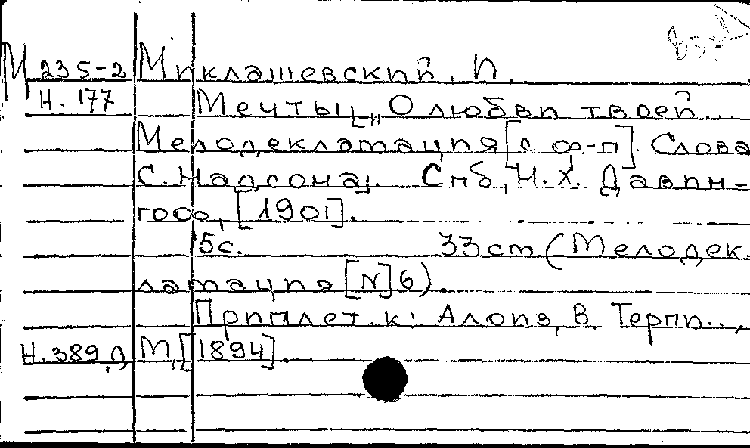 М 235-2 Миклашевский, И.
Н. 177 Мечты. „О любви твоей...
Мелодекламация [с ф-п]. Слова
С. Надсона. Спб, Н. Х. Давин-
гоф, [190?].
5с. 33cm (Мелодек-
ламация [N] 6).
Приплет. к: Алоиз, В. Терпи...,
Н. 389 М, [1894].